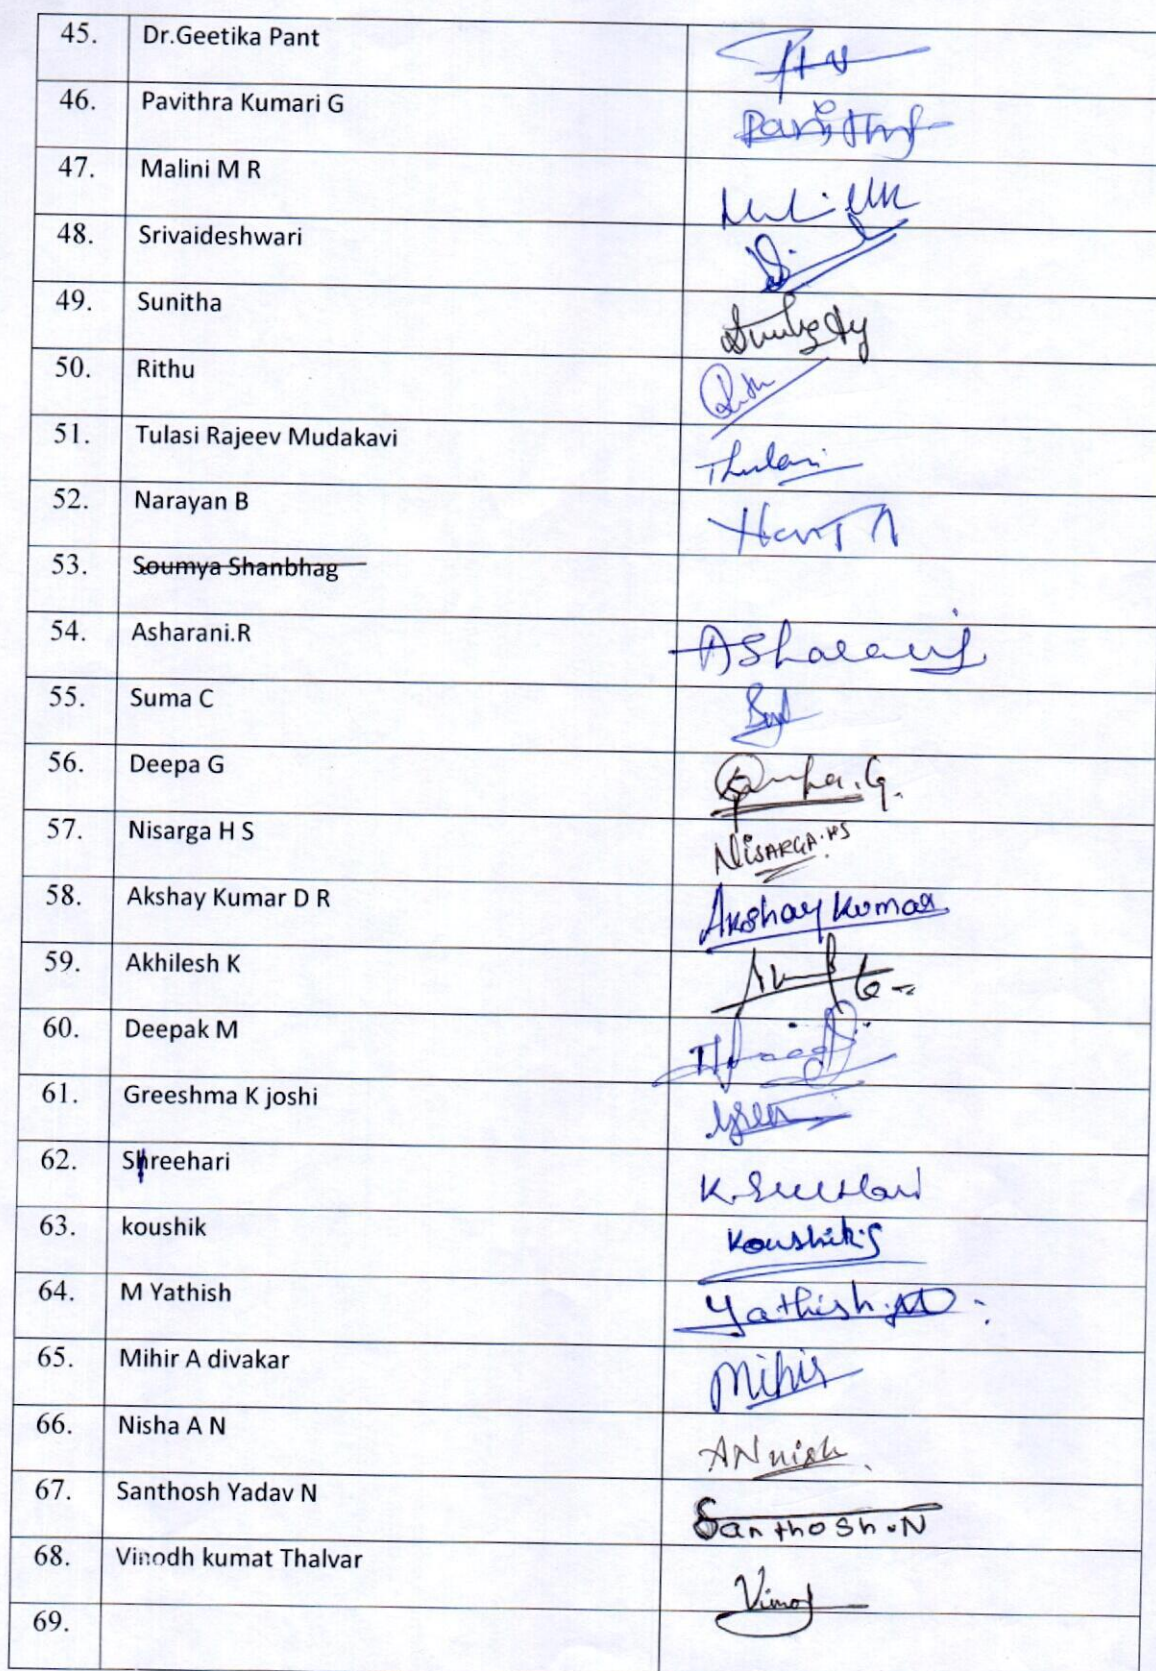 45. Dr.Geetika Pant
46. Pavithra Kumari G
47. Malini M R
48. Srivaideshwari
49. Sunitha
50. Rithu
51. Tulasi Rajeev Mudakavi Thulasi
52. Narayan B
53. Soumya Shanbhag
54. Asharani.R Asharani
55. Suma C
56. Deepa G
57. Nisarga H S NISARGA.HS
58. Akshay Kumar D R Akshay Kumar
59. Akhilesh K
60. Deepak M
61. Greeshma K joshi
62. Shreehari
63. koushik Koushik.S
64. M Yathish Yathish.M
65. Mihir A divakar Mihir
66. Nisha A N AN nish
67. Santhosh Yadav N Santhosh.N
68. Vinodh kumat Thalvar Vinod
69.